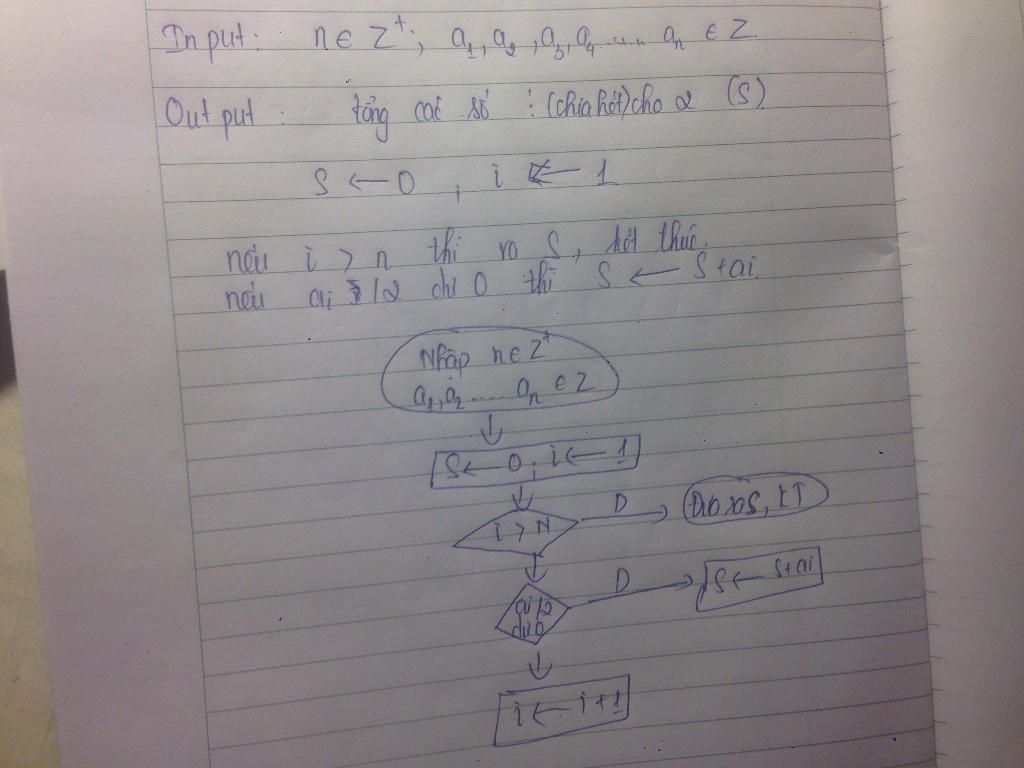 Input: n ∈ Z⁺; a₁, a₂, a₃, a₄ ..... aₙ ∈ Z
Output: tổng các số ⋮ (chia hết) cho 2 (S)
S ← 0, i ← 1
nếu i > n thì ra S, kết thúc.
nếu ai /2 dư 0 thì S ← S+ai.
Nhập n ∈ Z⁺
a₁, a₂ .... aₙ ∈ Z
S ← 0; i ← 1
i > N
D
Đưa ra S, KT
ai/2
dư 0
D
S ← S+ai
i ← i+1